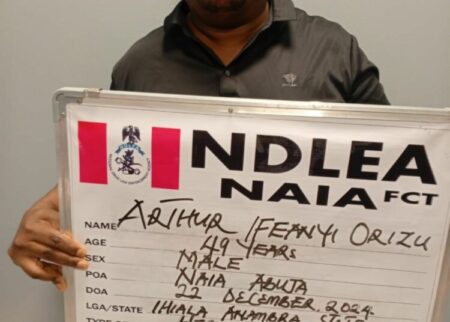 NDLEA
NAIA FCT
NAME ARTHUR IFEANYI ORIZU
AGE 49 YEARS
SEX MALE
POA NAIA ABUJA
DOA 22 DECEMBER, 2024
LGA/STATE IHIALA ANAMBRA